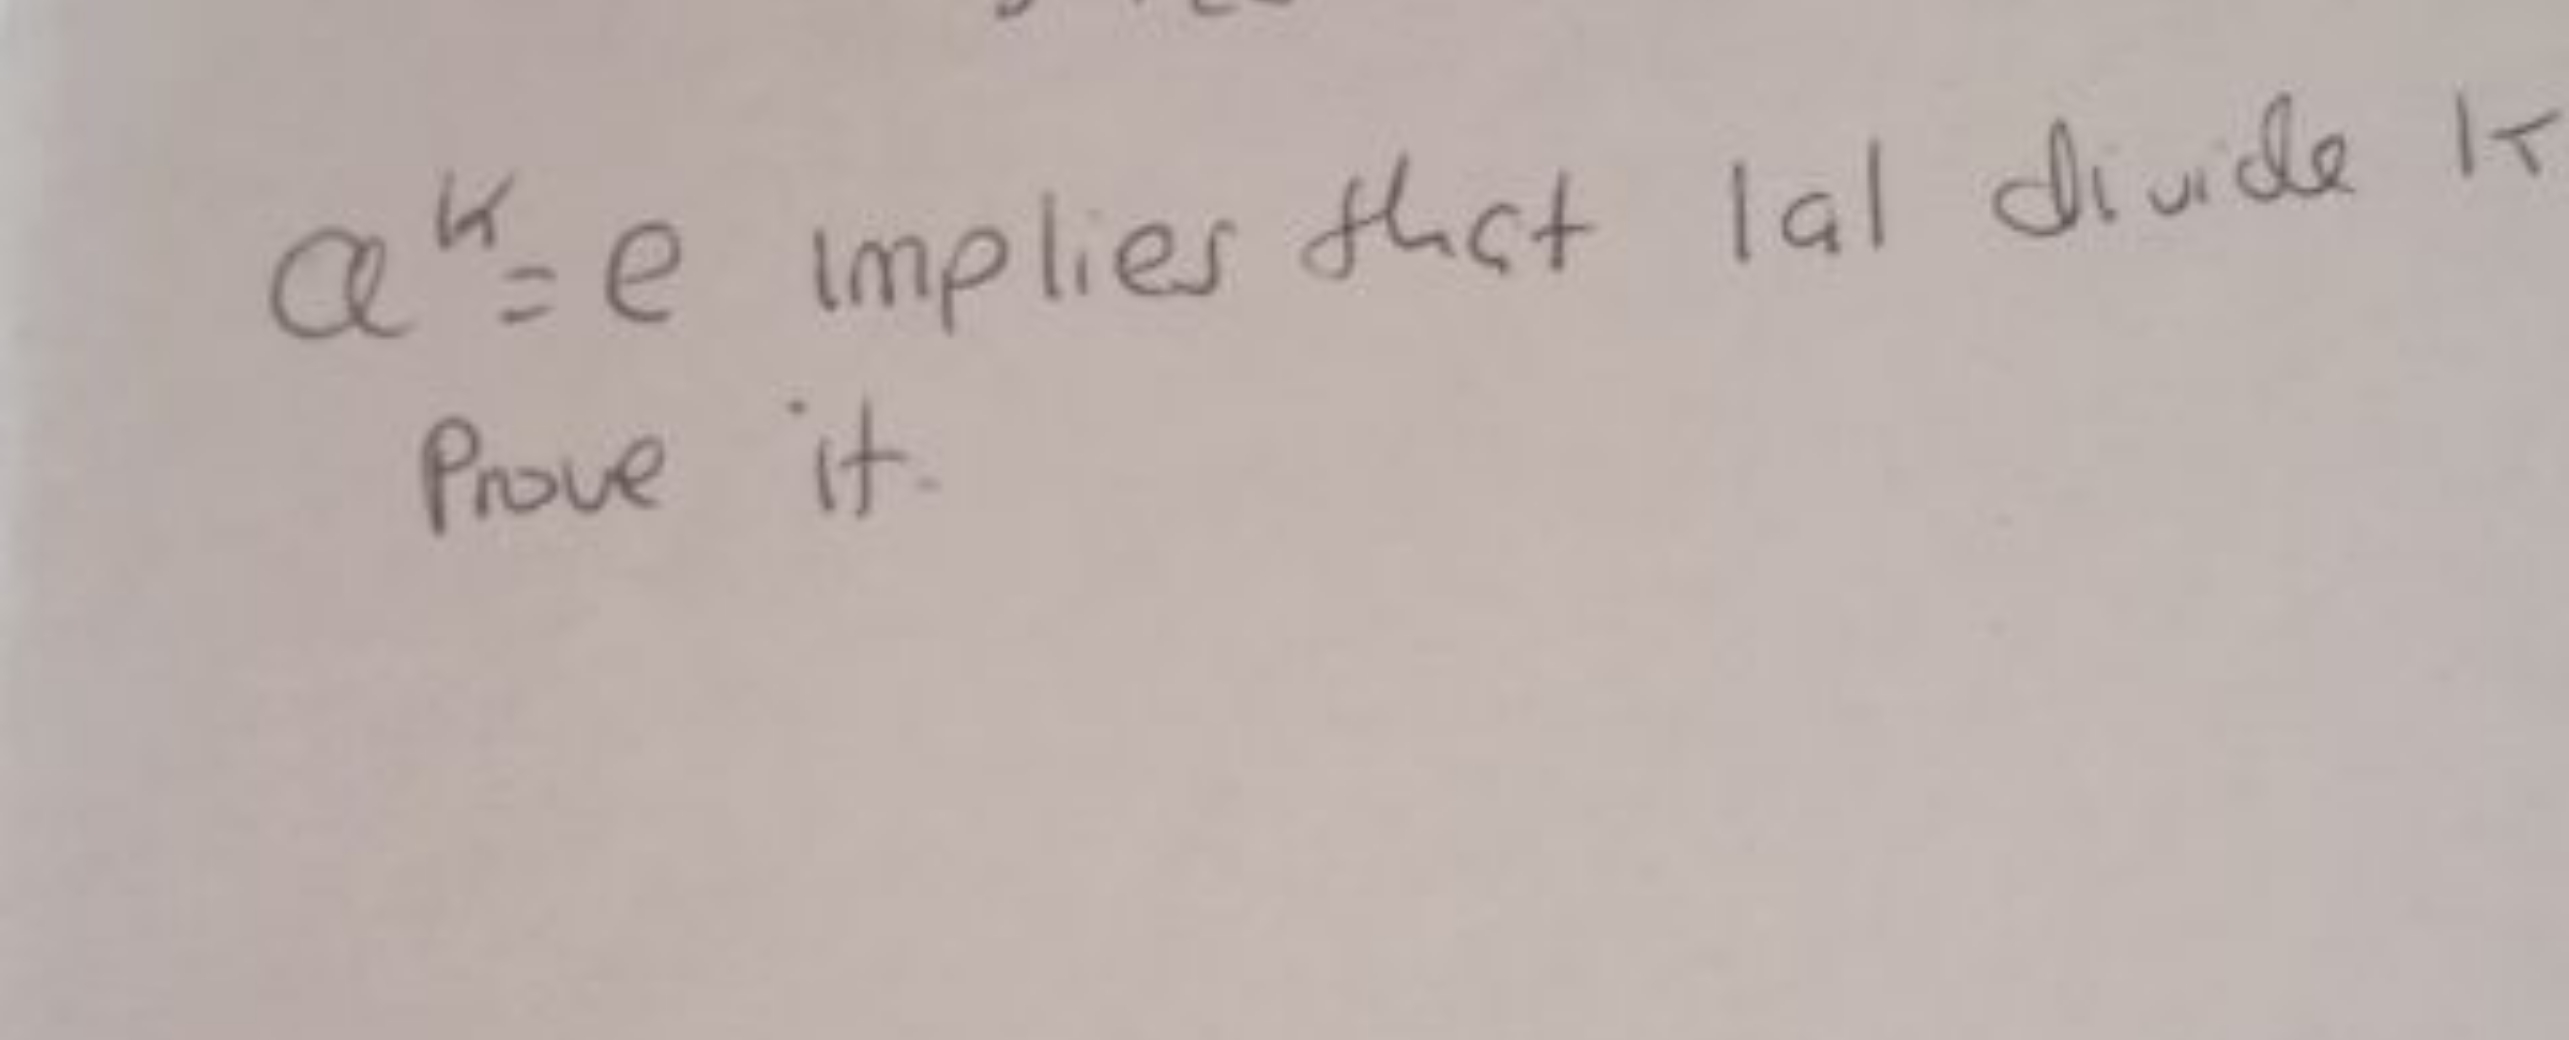 a^k = e implies that |a| divide k
Prove it.